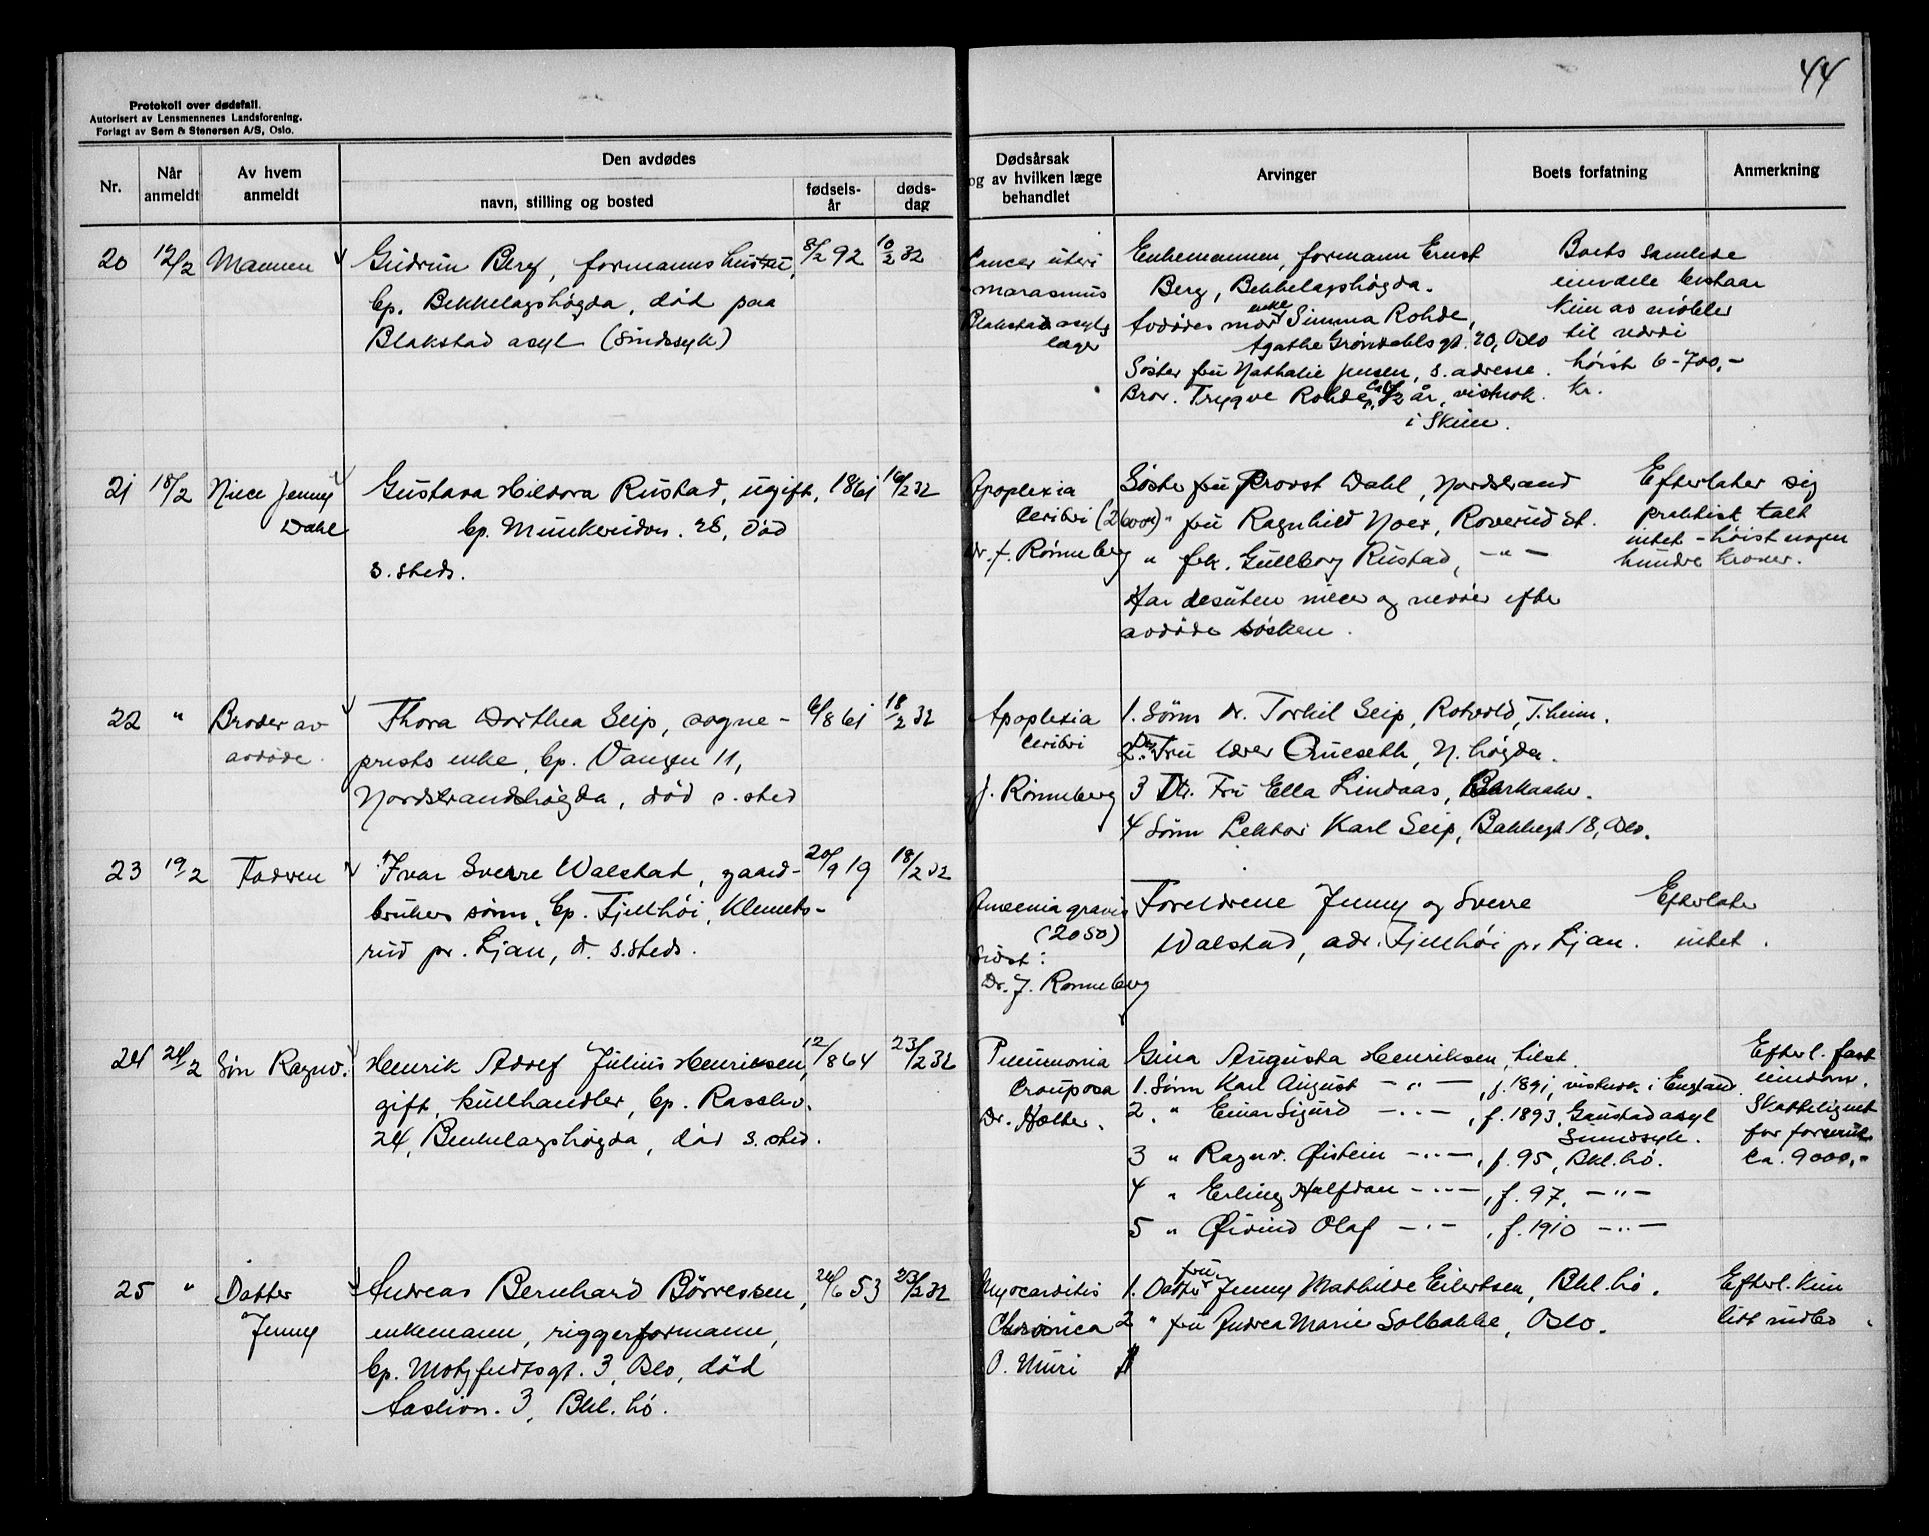 44
Protokoll over dødsfall.
Autorisert av Lensmennenes Landsforening.
Forlagt av Sem & Stenersen A/S, Oslo.
Nr.
Når anmeldt
Av hvem anmeldt
Den avdødes
navn, stilling og bosted
fødsels-år
døds-dag
Dødsårsak
og av hvilken læge
behandlet
Arvinger
Boets forfatning
Anmerkning
20 12/2 Mannen Gudrun Berg, formanns hustru, 8/2 92 10/2 32
bp. Bekkelagshøgda, død paa
Blakstad asyl (Sindssyk)
Cancer uteri
marasmus
Blakstad asyls
læger
Enkemannen, formann Ernst
Berg, Bekkelagshøgda.
Avdødes mor enke Simma Rohde,
Agathe Grøndahlsgt. 20, Oslo
Søster fru Nathalie Jensen, s. adresse.
Bror. Trygve Rohde, år, vistnok
i Skien.
Boets samlede
eiendele bestaar
kun av møbler
til værdi
høist 6-700,-
kr.
21 18/2 Niece Jenny Gustava Hildora Rustad, ugift, 1861 16/2 32
Dahl bp. Munkerudvn. 28, død
s. steds.
Apoplexia
Ceribri (2600)
Dr. J. Rønneberg
Søster fru Provst Dahl, Nordstrand
" fru Ragnhild Noer, Roverud st.
" frk. Gullborg Rustad, - " -
Har desuten niecer og nevøer efter
avdøde søsken.
Efterlater sig
praktisk talt
intet - høist nogen
hundre kroner.
22 " Broder av Thora Dorthea Seip, sogne- 6/8 61 18/2 32
avdøde. prests enke, bp. Vangen 11,
Nordstrandshøgda, død s. sted
Apoplexia
Ceribri
J. Rønneberg
1. Sønn dr. Torkil Seip, Rotvold, T.heim.
2. Dtr. Fru lærer Queseth, N. høgda.
3 Dtr. Fru Ella Lindaas, Barkaaker.
4 Sønn Lektor Karl Seip, Bakkegt 18, Oslo.
23 19/2 Fadren Ivar Sverre Walstad, gaard- 20/9 19 18/2 32
brukers sønn, bp. Fjellhøi, Klemets-
rud pr. Ljan, d. s. steds.
Anæmia gravis
(2050)
Sidst:
Dr. J. Rønneberg
Foreldrene Jenny og Sverre
Walstad, adr. Fjellhøi pr. Ljan.
Efterlater
intet.
24 24/2 Søn Ragnv. Henrik Adolf Julius Henriksen, 12/8 64 23/2 32
gift, kullhandler, bp. Rasslev.
24, Bekkelagshøgda, død s. sted.
Pneumonia
Crouposa
Dr. Holter.
Gina Augusta Henriksen, tilst.
1. Sønn Karl August - " -, f. 1891, vistnok i England
2. " Einar Sigurd - " -, f. 1893, Gaustad asyl
Sinnssyk.
3 " Ragnv. Øistein - " -, f. 95, Bkl. hø.
4 " Erling Halfdan - " -, f. 97, - " -
5 " Øivind Olaf - " -, f. 1910 - " -
Efterl. fast
eiendom.
Skattelignet
for formue
ca. 9000,-
25 " Datter Andreas Bernhard Børresen, 24/6 53 23/2 32
Jenny enkemann, riggerformann,
bp. Motzfeldtsgt. 3, Oslo, død
Aaslivn. 3, Bkl. hø.
Myocarditis
Chronica
O. Muri
1. Datter fru Jenny Mathilde Eilertsen, Bkl. hø.
2 " fru Andrea Marie Solbakke, Oslo.
Efterl. kun
litt indbo.